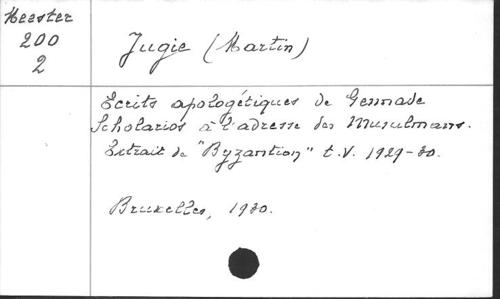 Meester
200
2
Jugie (Martin)
Ecrits apologétiques de Gennade
Scholarios à l'adresse des Musulmans.
Extrait de "Byzantion" t.V. 1929-30.
Bruxelles, 1930.